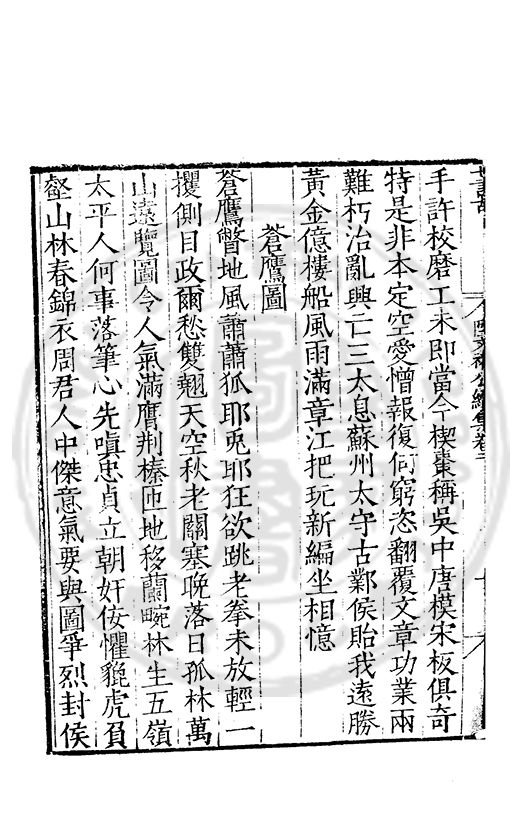 手許校磨工未即當今楔棗稱吳中唐模宋板俱奇
特是非本定空愛憎報復何窮恣翻覆文章功業兩
難朽治亂興亡三太息蘇州太守古酇侯貽我遠勝
黃金億樓船風雨滿章江把玩新編坐相憶
蒼鷹圖
蒼鷹瞥地風蕭蕭狐耶兎耶狂欲跳老拳未放輕一
攫側目政爾愁雙翹天空秋老關塞晚落日孤林萬
山遠覽圖令人氣滿膺荆榛匝地移蘭畹林生五嶺
太平人何事落筆心先嗔忠貞立朝奸佞懼貔虎負
壑山林春錦衣周君人中傑意氣要與圖爭烈封侯